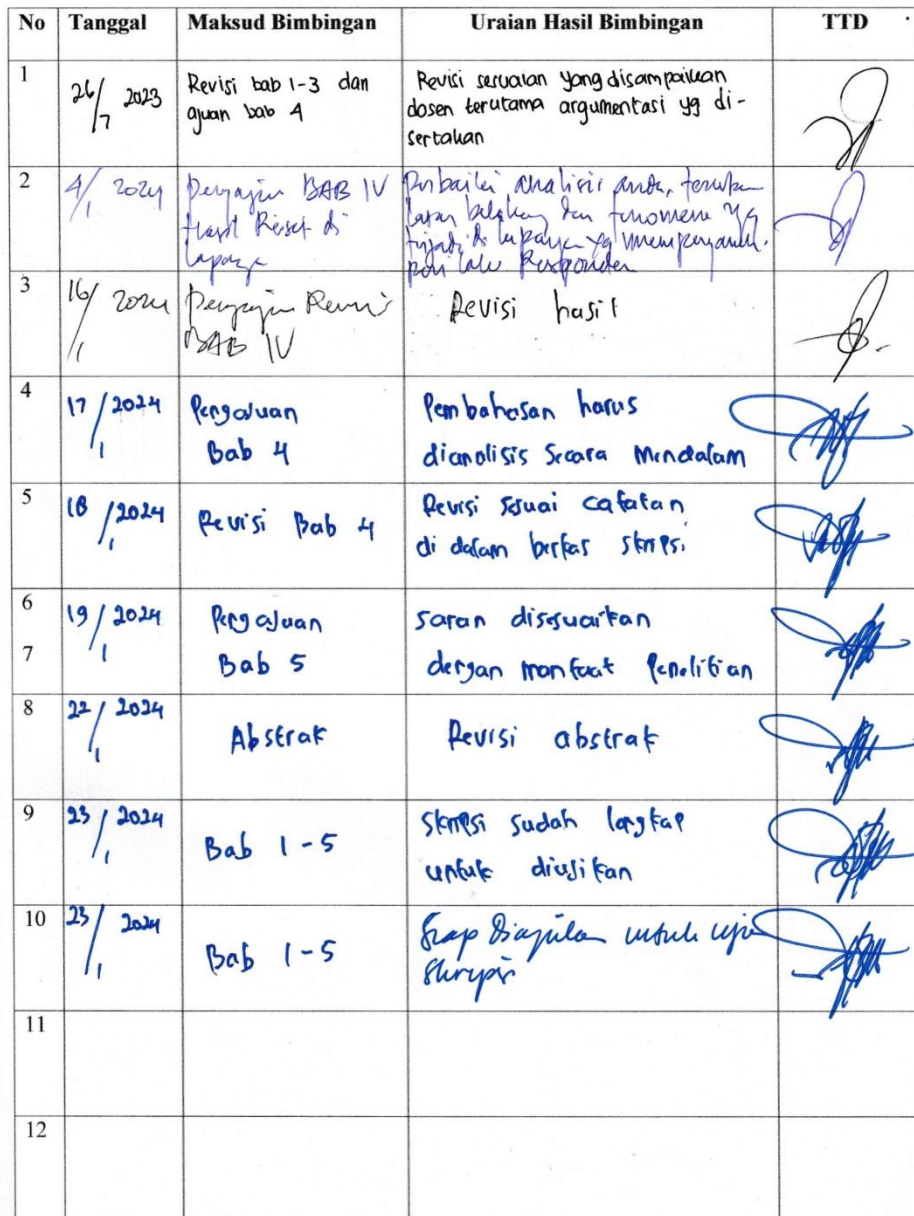 No Tanggal Maksud Bimbingan Uraian Hasil Bimbingan TTD
1
26/7 2023
Revisi bab 1-3 dan
ajuan bab 4
Revisi sesuaian yang disampaikan
dosen terutama argumentasi yg di-
sertakan
2
4/1 2024
Pengajuan BAB IV
Hasil Riset di
lapangan
Perbaiki analisis anda, temukan
latar belakang dan fenomena yg
terjadi di lapangan yg mempengaruhi
Responden
3
16/1 2024
Pengajuan Revisi
BAB IV
Revisi hasil
4
17/1 2024
Pengajuan
Bab 4
Pembahasan harus
dianalisis secara mendalam
5
18/1 2024
Revisi Bab 4
Revisi sesuai catatan
di dalam berkas skripsi
6
7
19/1 2024
Pengajuan
Bab 5
saran disesuaikan
dengan manfaat Penelitian
8
22/1 2024
Abstrak
Revisi abstrak
9
23/1 2024
Bab 1-5
skripsi sudah lengkap
untuk diujikan
10
23/1 2024
Bab 1-5
Siap Diajukan untuk ujian
skripsi
11
12